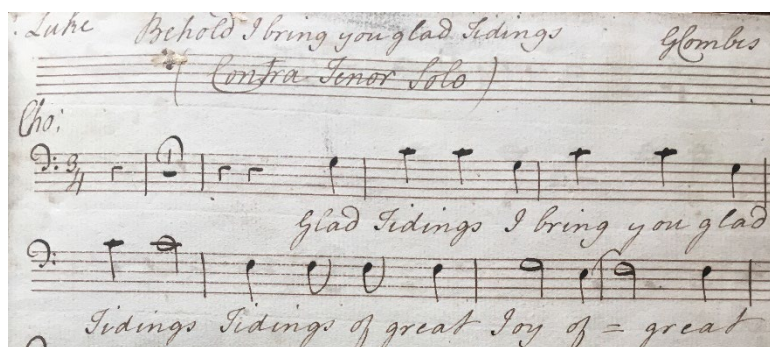 . Luke Behold I bring you glad Tidings GCombes
( Contra Tenor Solo )
Cho:
3/4 1
Glad Tidings I bring you glad
Tidings Tidings of great Joy of = great